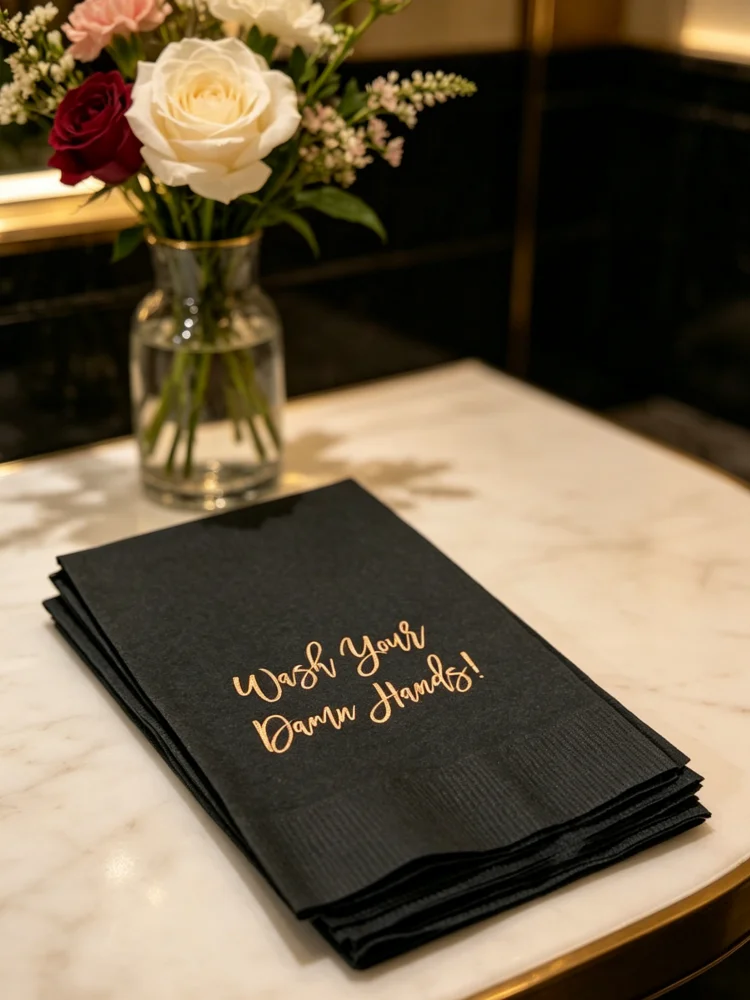 Wash Your
Damn Hands!